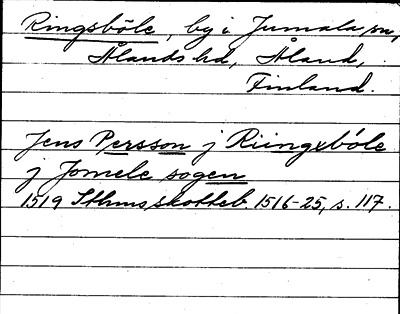 Ringsböle, by i Jumala sn,
Ålands hd, Åland,
Finland.
Jens Persson j Riingxböle
j Jomele sogen
1519 Sthms skotteb. 1516-25, s. 117.